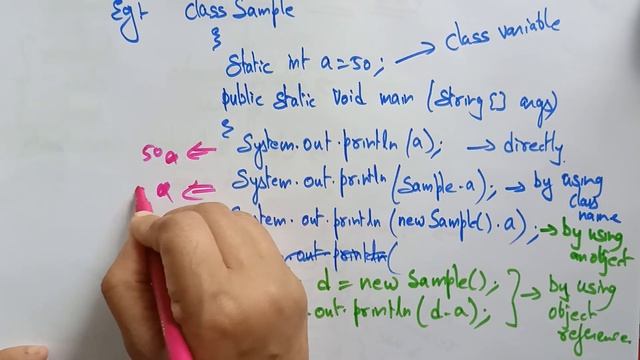 Eg:- class Sample
{
Static int a=50; → class variable
public static void main (String[] args)
{
50 a ⇐ System.out.println(a); → directly.
a ⇐ System.out.println(Sample.a); → by using class name
System.out.println(new Sample().a); → by using an object
out.println(
d = new Sample();
out.println(d.a); → by using object reference.